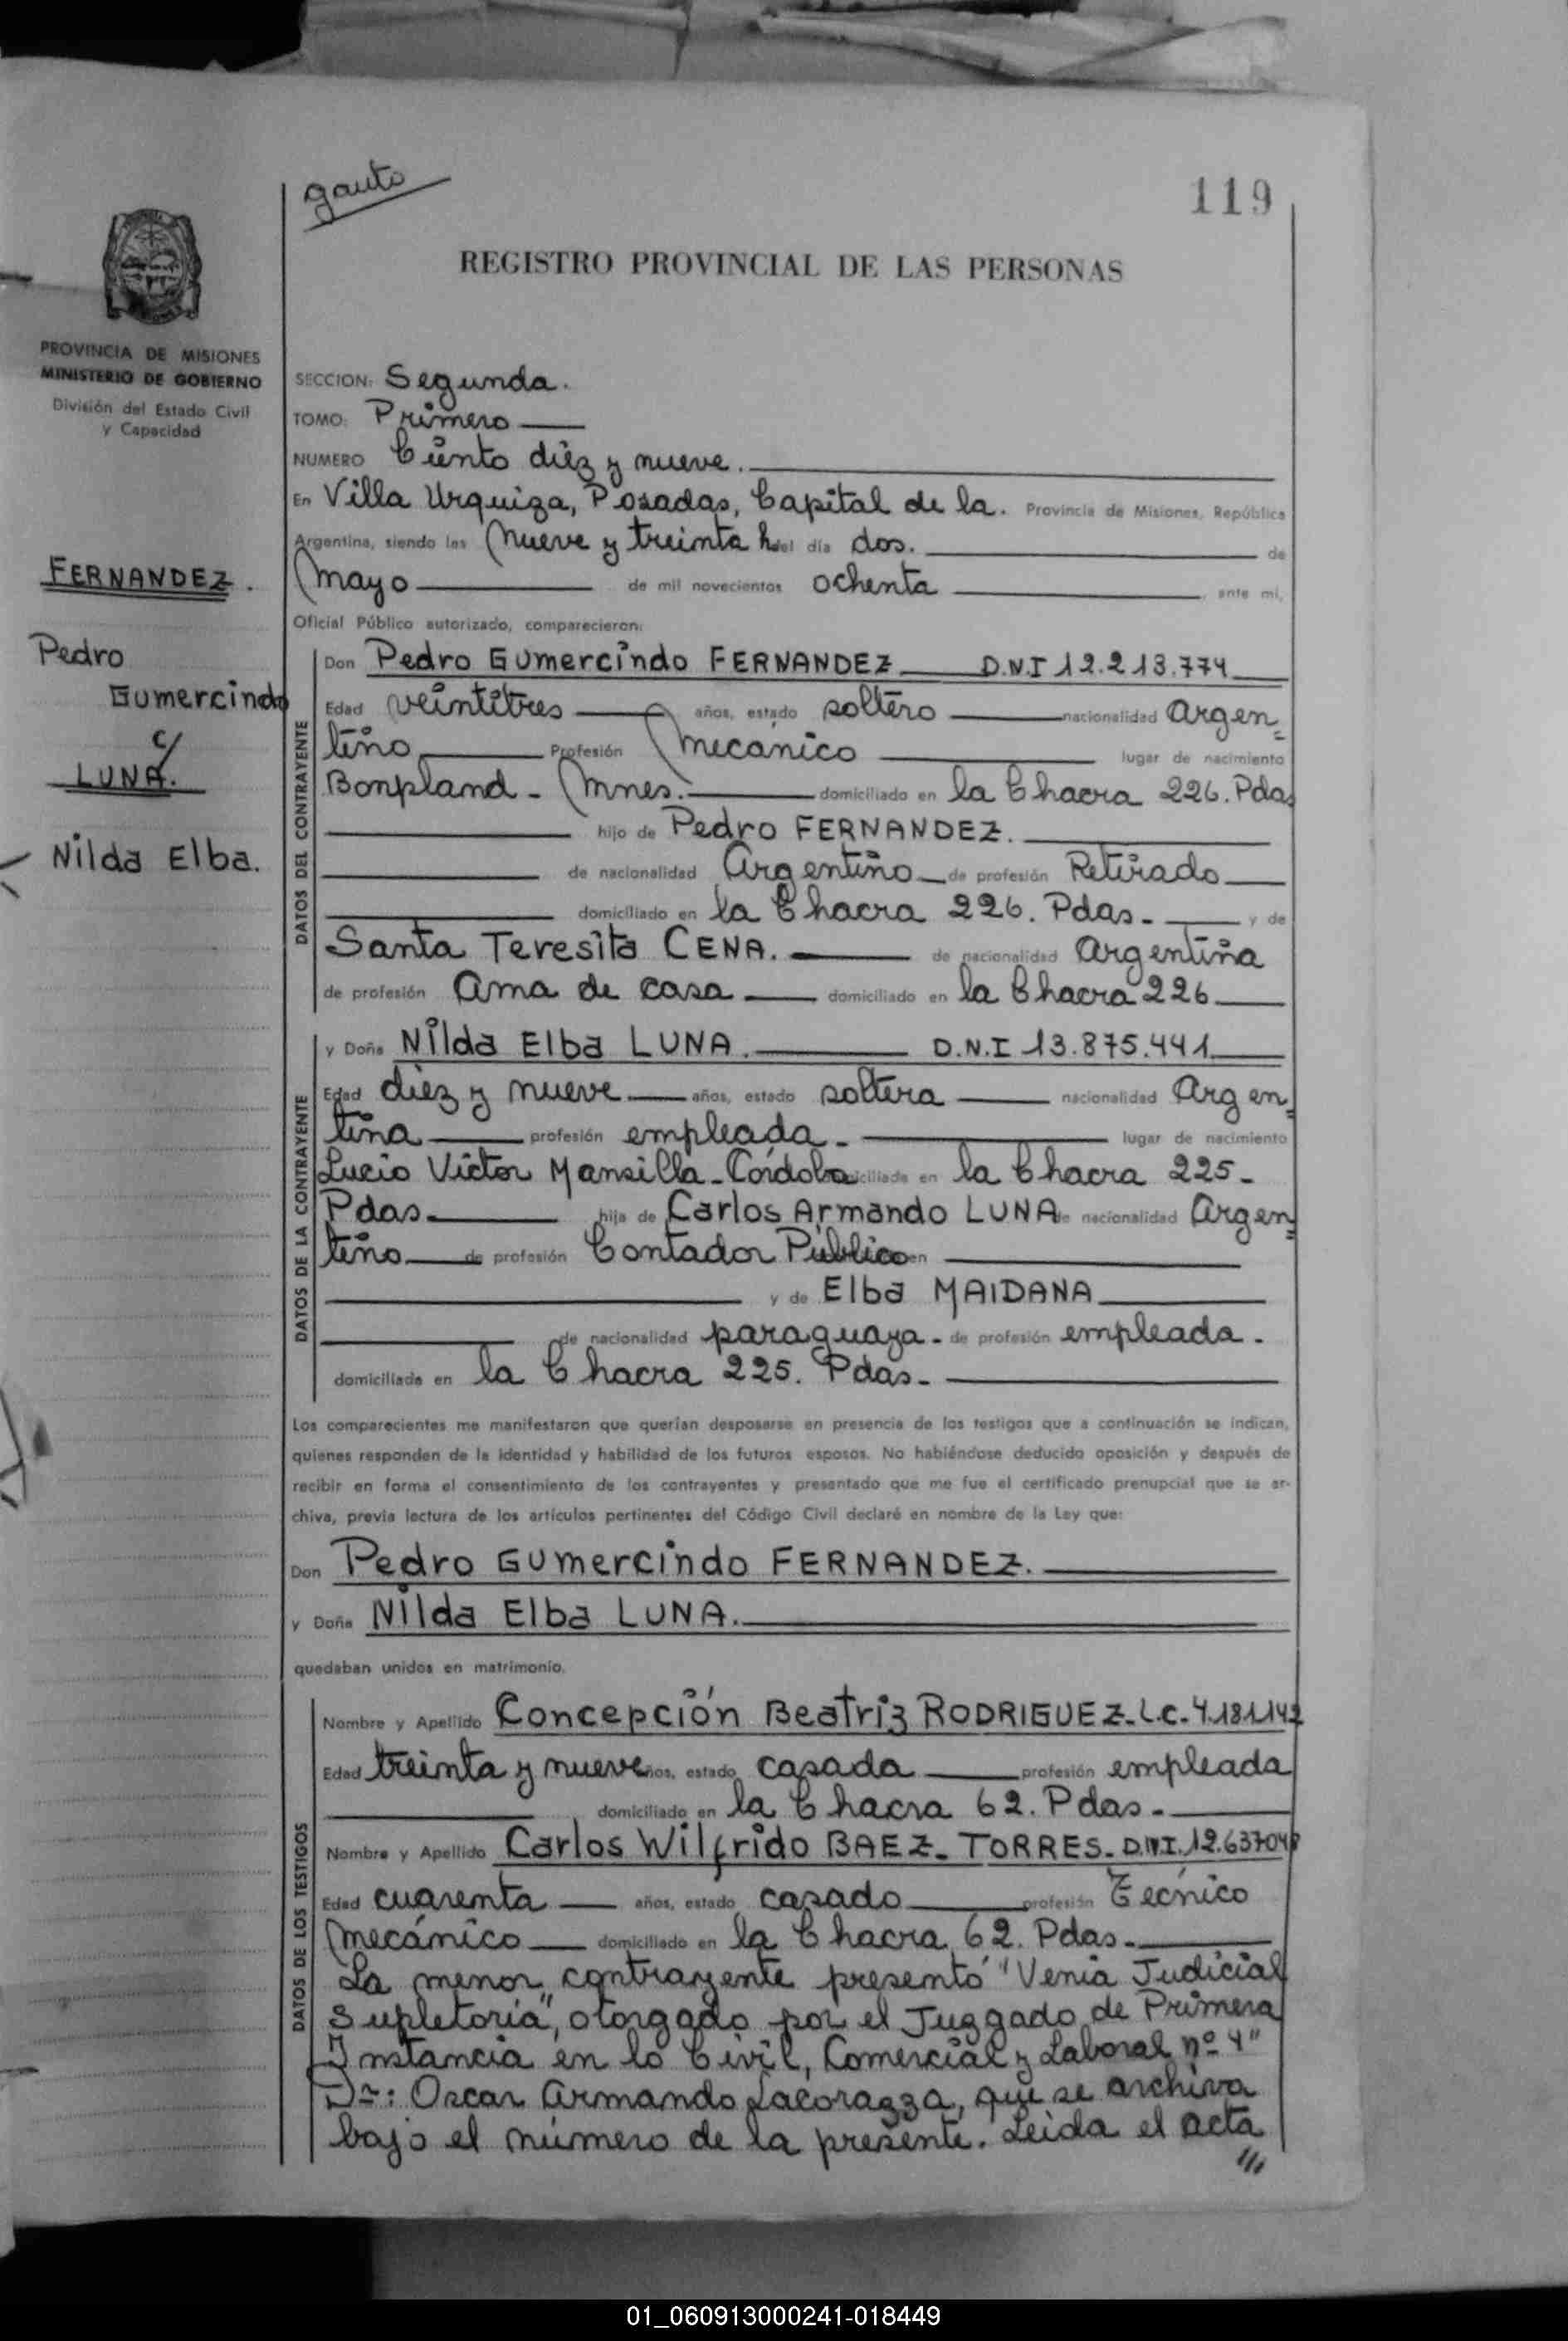 gauto
119
REGISTRO PROVINCIAL DE LAS PERSONAS
PROVINCIA DE MISIONES
MINISTERIO DE GOBIERNO
División del Estado Civil
y Capacidad
FERNANDEZ.
Pedro
Gumercindo
c/
LUNA.
Nilda Elba.
SECCION: Segunda.
TOMO: Primero
NUMERO Ciento diéz y nueve.
En Villa Urquiza, Posadas, Capital de la. Provincia de Misiones, República
Argentina, siendo las Nueve y treinta h. del día dos. de
Mayo de mil novecientos ochenta, ante mi,
Oficial Público autorizado, comparecieron:
DATOS DEL CONTRAYENTE
Don Pedro Gumercindo FERNANDEZ D.N.I 12.213.774
Edad veintitres años, estado soltero nacionalidad Argen=
tino Profesión Mecánico lugar de nacimiento
Bonpland - Mnes. domiciliado en la Chacra 226. Pdas
hijo de Pedro FERNANDEZ.
de nacionalidad Argentino de profesión Retirado
domiciliado en la Chacra 226. Pdas- y de
Santa Teresita CENA. de nacionalidad Argentina
de profesión Ama de casa domiciliado en la Chacra 226
DATOS DE LA CONTRAYENTE
y Doña Nilda Elba LUNA. D.N.I 13.875.441
Edad diez y nueve años, estado soltera nacionalidad Argen=
tina profesión empleada- lugar de nacimiento
Lucio Victor Mansilla-Córdoba domiciliada en la Chacra 225-
Pdas. hija de Carlos Armando LUNA de nacionalidad Argen=
tino de profesión Contador Público en
y de Elba MAIDANA
de nacionalidad paraguaya- de profesión empleada-
domiciliada en la Chacra 225. Pdas-
Los comparecientes me manifestaron que querían desposarse en presencia de los testigos que a continuación se indican,
quienes responden de la identidad y habilidad de los futuros esposos. No habiéndose deducido oposición y después de
recibir en forma el consentimiento de los contrayentes y presentado que me fue el certificado prenupcial que se ar-
chiva, previa lectura de los artículos pertinentes del Código Civil declaré en nombre de la Ley que:
Don Pedro Gumercindo FERNANDEZ.
y Doña Nilda Elba LUNA.
quedaban unidos en matrimonio.
DATOS DE LOS TESTIGOS
Nombre y Apellido Concepción Beatriz RODRIGUEZ-L.C-4.181.142
Edad treinta y nueve años, estado casada profesión empleada
domiciliado en la Chacra 62. Pdas-
Nombre y Apellido Carlos Wilfrido BAEZ- TORRES- D.N.I.
Edad cuarenta años, estado casado profesión Técnico
Mecánico domiciliado en la Chacra 62. Pdas-
La menor contrayente presentó "Venia Judicial
Supletoria", otorgado por el Juzgado de Primera
Instancia en lo Civil, Comercial y Laboral nº 4"
Dr: Oscar Armando Lacorazza, que se archiva
bajo el número de la presente. Leida el acta
///
01_060913000241-018449